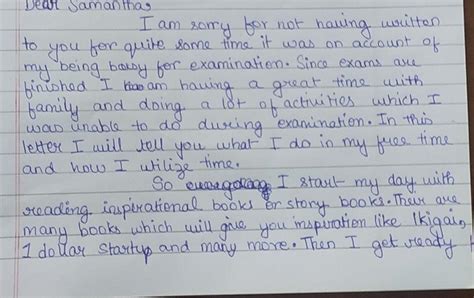 Dear Samantha,
I am sorry for not having written
to you for quite some time it was on account of
my being busy for examination. Since exams are
finished I am having a great time with
family and doing a lot of activities which I
was unable to do during examination. In this
letter I will tell you what I do in my free time
and how I utilize time.
So I start my day with
reading inspirational books or story books. Their are
many books which will give you inspiration like Ikigain,
1 dollar Startup and many more. Then I get ready